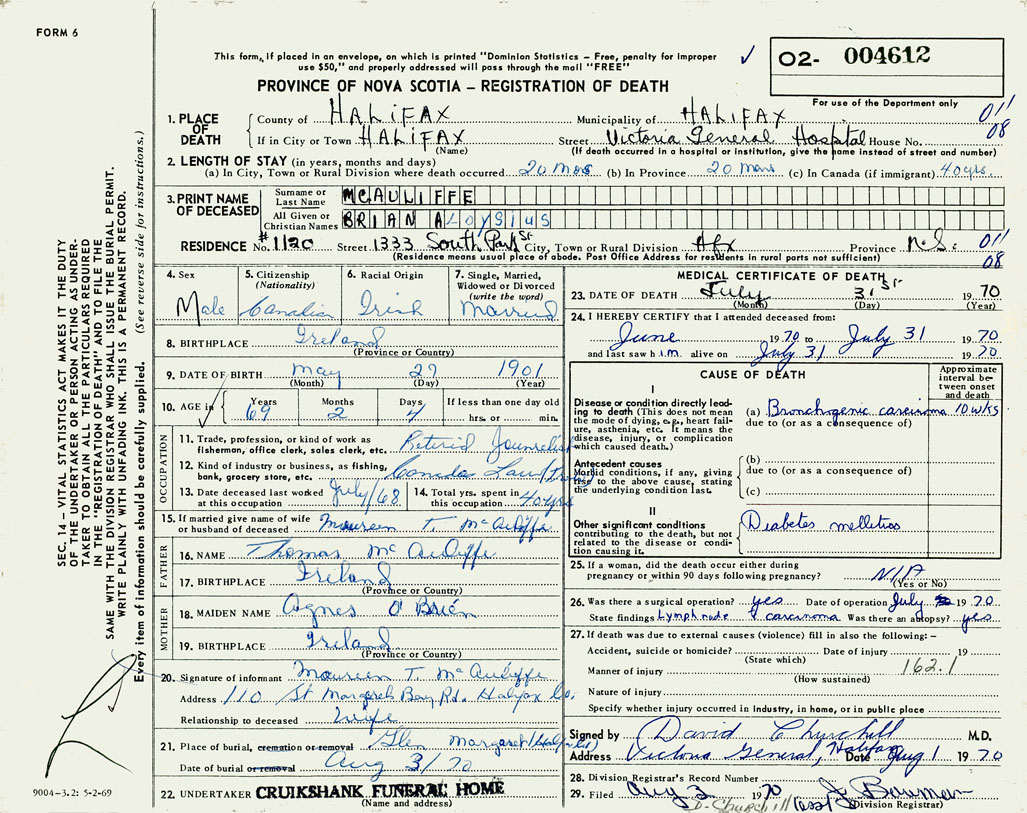 FORM 6
This form, if placed in an envelope, on which is printed "Dominion Statistics – Free, penalty for improper
use $50," and properly addressed will pass through the mail "FREE"
✓
O2- 004612
For use of the Department only
PROVINCE OF NOVA SCOTIA – REGISTRATION OF DEATH
1. PLACE OF DEATH
County of HALIFAX Municipality of HALIFAX 011
If in City or Town HALIFAX Street Victoria General Hospital House No. 08
(Name) (If death occurred in a hospital or institution, give the name instead of street and number)
2. LENGTH OF STAY (in years, months and days)
(a) In City, Town or Rural Division where death occurred 20 mos (b) In Province 20 mons (c) In Canada (if immigrant) 40 yrs.
3. PRINT NAME OF DECEASED
Surname or Last Name MCAULIFFE
All Given or Christian Names BRIAN ALOYSIUS
RESIDENCE No. #1120 Street 1333 South Park St City, Town or Rural Division Hfx Province N.S. 011
(Residence means usual place of abode. Post Office Address for residents in rural parts not sufficient) 08
4. Sex Male
5. Citizenship (Nationality) Canadian
6. Racial Origin Irish
7. Single, Married, Widowed or Divorced (write the word) Married
8. BIRTHPLACE Ireland
(Province or Country)
9. DATE OF BIRTH May 27 1901
(Month) (Day) (Year)
10. AGE in Years 69 Months 2 Days 4 If less than one day old
hrs. or min.
OCCUPATION
11. Trade, profession, or kind of work as fisherman, office clerk, sales clerk, etc. Retired Journalist
12. Kind of industry or business, as fishing, bank, grocery store, etc. Canada Law
13. Date deceased last worked at this occupation July/68
14. Total yrs. spent in this occupation 40 yrs
15. If married give name of wife or husband of deceased Maureen T. McAuliffe
FATHER
16. NAME Thomas McAuliffe
17. BIRTHPLACE Ireland
(Province or Country)
MOTHER
18. MAIDEN NAME Agnes O'Brien
19. BIRTHPLACE Ireland
(Province or Country)
20. Signature of informant Maureen T. McAuliffe
Address 110 St Margarets Bay Rd. Halifax Co.
Relationship to deceased Wife
21. Place of burial, cremation or removal Glen Margaret/Halifax
Date of burial or removal Aug 3/70
22. UNDERTAKER CRUIKSHANK FUNERAL HOME
(Name and address)
MEDICAL CERTIFICATE OF DEATH
23. DATE OF DEATH July 31st 1970
(Month) (Day) (Year)
24. I HEREBY CERTIFY that I attended deceased from:
June 1970 to July 31 1970
and last saw h i.m. alive on July 31 1970
CAUSE OF DEATH
Approximate interval between onset and death
I
Disease or condition directly leading to death (This does not mean the mode of dying, e.g., heart failure, asthenia, etc. It means the disease, injury, or complication which caused death.)
(a) Bronchogenic carcinoma 10 wks
due to (or as a consequence of)
Antecedent causes
Morbid conditions, if any, giving rise to the above cause, stating the underlying condition last.
(b)
due to (or as a consequence of)
(c)
II
Other significant conditions contributing to the death, but not related to the disease or condition causing it.
Diabetes mellitus
25. If a woman, did the death occur either during
pregnancy or within 90 days following pregnancy? N/A
(Yes or No)
26. Was there a surgical operation? yes Date of operation July 1970
State findings Lymph node carcinoma Was there an autopsy? yes
27. If death was due to external causes (violence) fill in also the following: –
Accident, suicide or homicide? Date of injury 19
(State which)
Manner of injury 162.1
(How sustained)
Nature of injury
Specify whether injury occurred in industry, in home, or in public place
Signed by David Churchill M.D.
Address Victoria General, Halifax Date Aug 1 1970
28. Division Registrar's Record Number
29. Filed Aug 3 1970 J. Bauman
D. Churchill (Division Registrar)
SEC. 14 – VITAL STATISTICS ACT MAKES IT THE DUTY
OF THE UNDERTAKER OR PERSON ACTING AS UNDERTAKER TO OBTAIN ALL THE PARTICULARS REQUIRED
IN THE "REGISTRATION OF DEATH" AND TO FILE THE
SAME WITH THE DIVISION REGISTRAR WHO SHALL ISSUE THE BURIAL PERMIT.
WRITE PLAINLY WITH UNFADING INK. THIS IS A PERMANENT RECORD.
Every item of information should be carefully supplied. (See reverse side for instructions.)
9004-3.2: 5-2-69